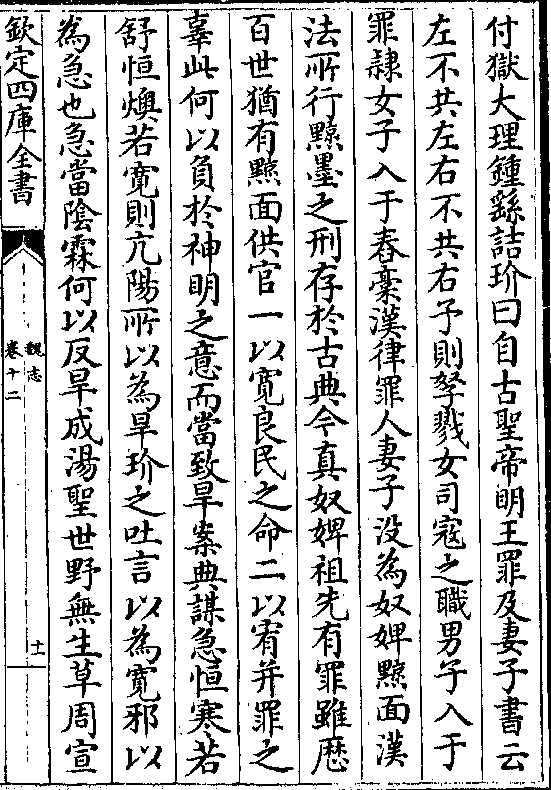 付獄大理鍾繇詰玠曰自古聖帝明王罪及妻子書云
左不共左右不共右予則孥戮女司寇之職男子入于
罪隷女子入于舂稾漢律罪人妻子沒為奴婢黥面漢
法所行黥墨之刑存於古典今真奴婢祖先有罪雖歷
百世猶有黥面供官一以寛良民之命二以宥并罪之
辜此何以負於神明之意而當致旱案典謀急恒寒若
舒恒燠若寛則亢陽所以為旱玠之吐言以為寛邪以
為急也急當陰霖何以反旱成湯聖世野無生草周宣
欽定四庫全書
魏志
卷十二
十一